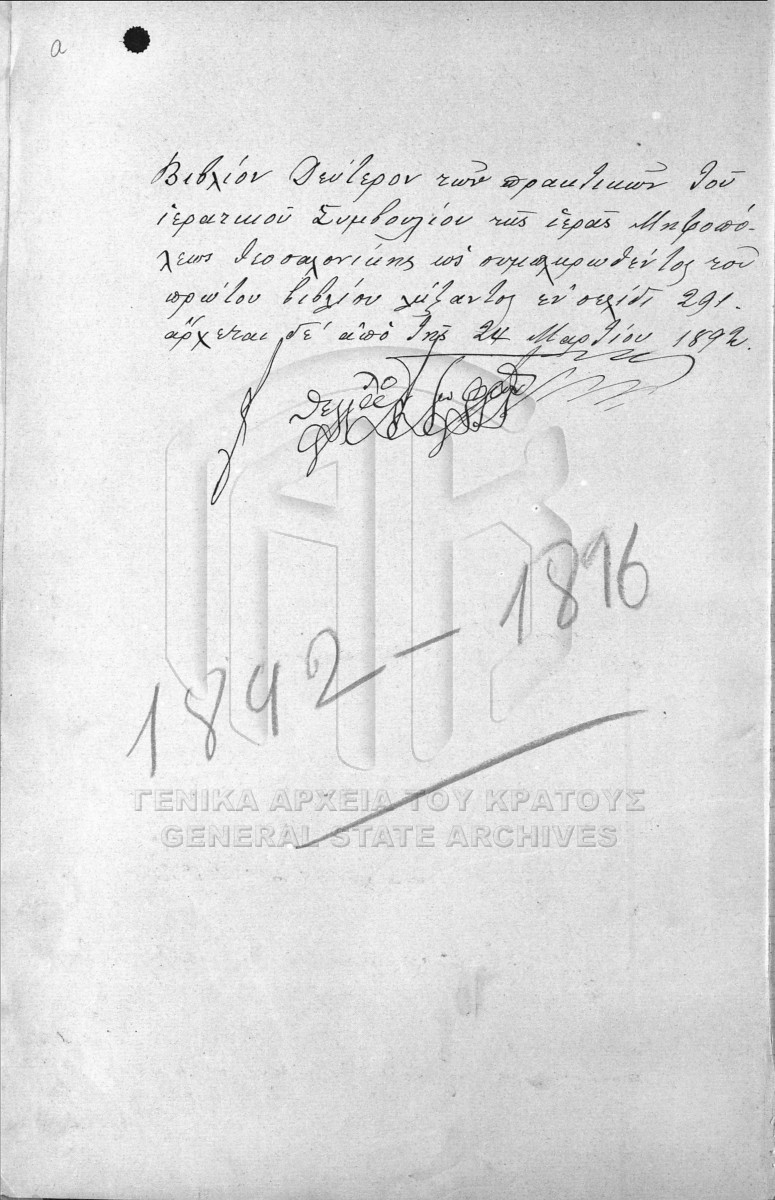 a
Βιβλίον Δεύτερον τῶν πρακτικῶν τοῦ
ἱερατικοῦ Συμβουλίου τῆς ἱερᾶς Μητροπό-
λεως Θεσσαλονίκης ὡς συμπληρωθέντος τοῦ
πρώτου βιβλίου λήξαντος ἐν σελίδι 291.
ἄρχεται δὲ ἀπὸ τῆς 24 Μαρτίου 1892.
1892 – 1896
ΓΕΝΙΚΑ ΑΡΧΕΙΑ ΤΟΥ ΚΡΑΤΟΥΣ
GENERAL STATE ARCHIVES